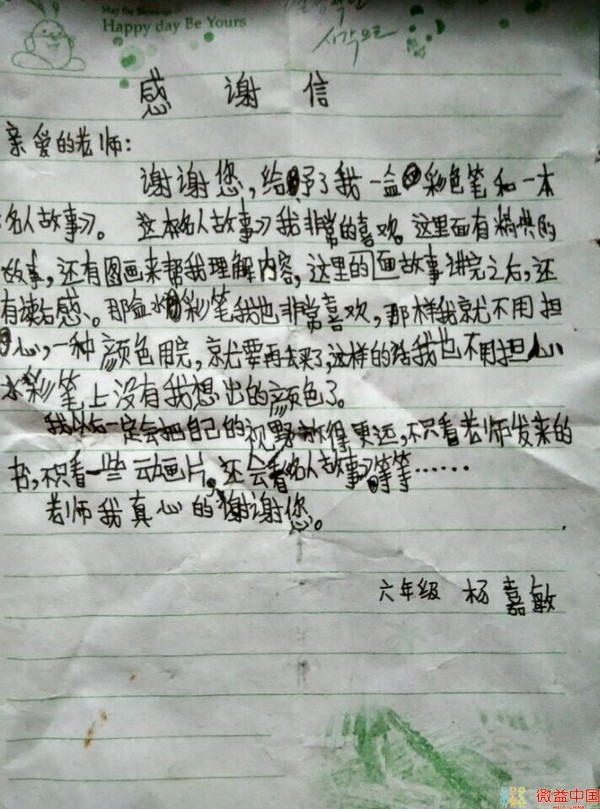 Happy day Be Yours
感谢信
亲爱的老师：
谢谢您，给予了我一盒彩色笔和一本
《名人故事》。这本《名人故事》我非常的喜欢。这里面有精典的
故事，还有图画来帮我理解内容，这里的面故事讲完之后，还
有读后感。那盒水彩笔我也非常喜欢，那样我就不用担
心，一种颜色用完，就要再去买了，这样的话我也不用担心
水彩笔上没有我想出的颜色了。
我以后一定会把自己的视野放得更远，不只看老师发来的
书，不只看一些动画片。还会看《名人故事》等等……
老师我真心的谢谢您。
六年级 杨嘉敏
微益中国